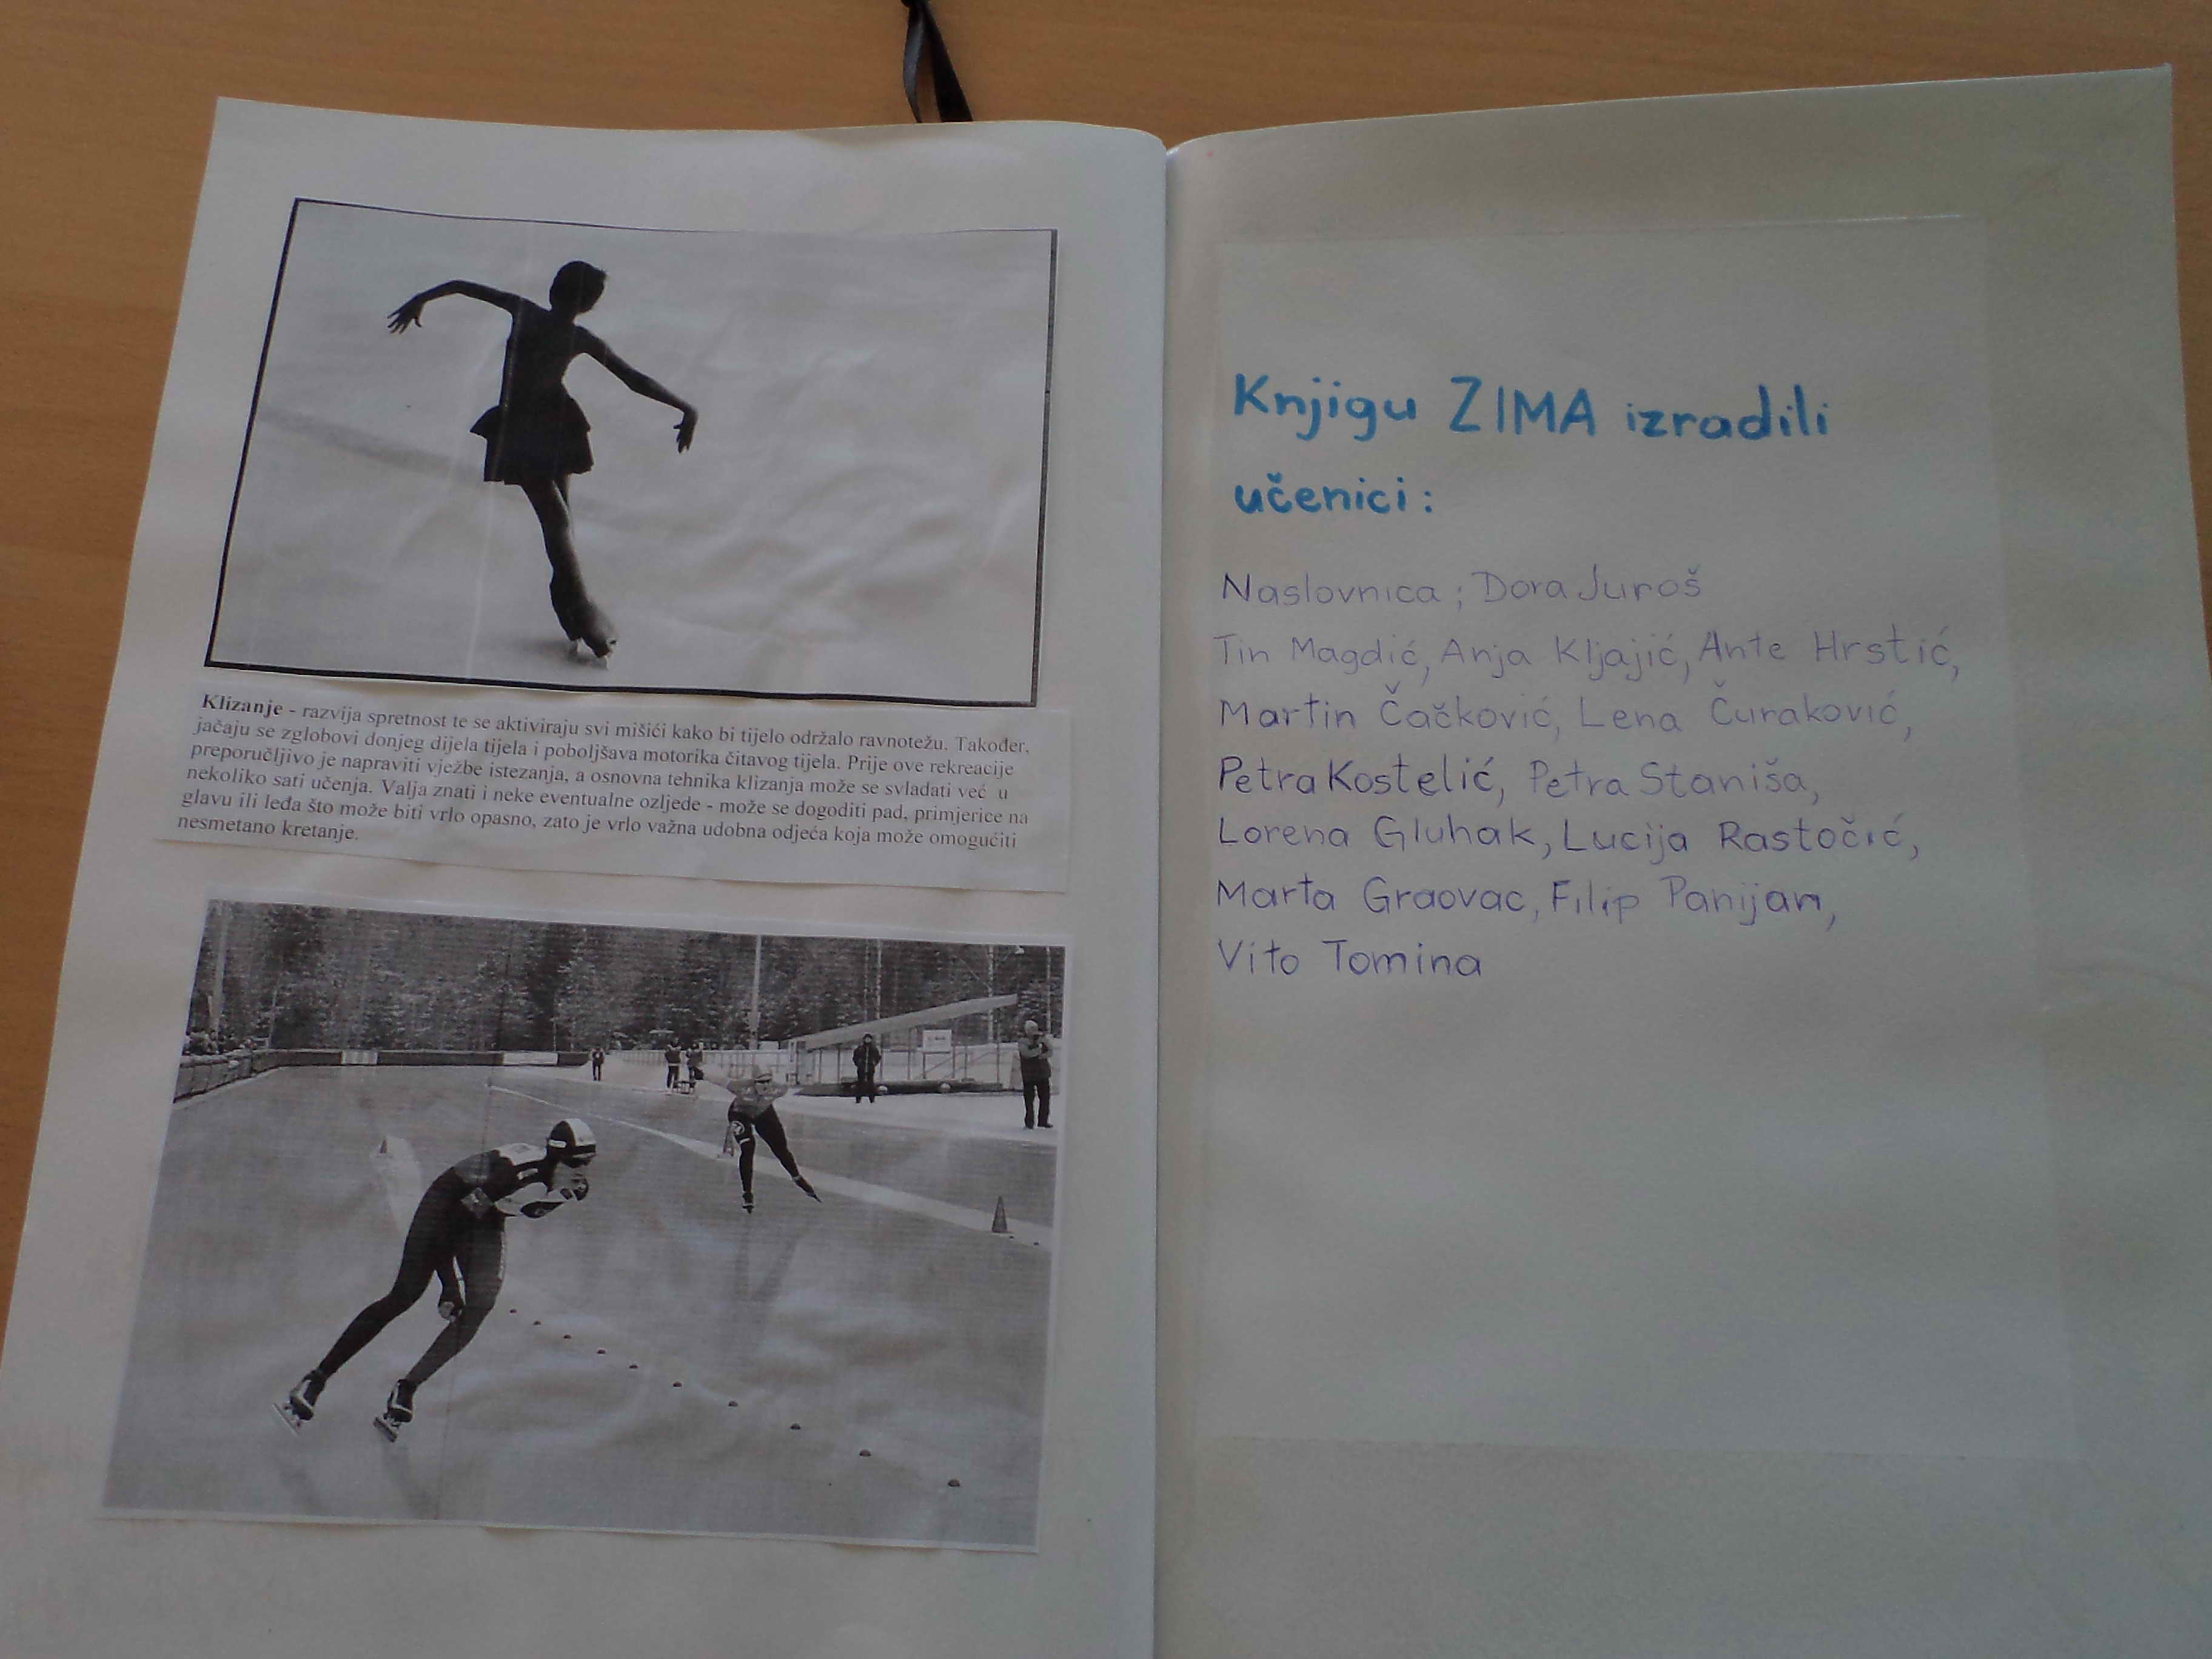 Klizanje - razvija spretnost te se aktiviraju svi mišići kako bi tijelo održalo ravnotežu. Također,
jačaju se zglobovi donjeg dijela tijela i poboljšava motorika čitavog tijela. Prije ove rekreacije
preporučljivo je napraviti vježbe istezanja, a osnovna tehnika klizanja može se svladati već u
nekoliko sati učenja. Valja znati i neke eventualne ozljede - može se dogoditi pad, primjerice na
glavu ili leđa što može biti vrlo opasno, zato je vrlo važna udobna odjeća koja može omogućiti
nesmetano kretanje.
Knjigu ZIMA izradili
učenici:
Naslovnica; Dora Juroš
Tin Magdić, Anja Kljajić, Ante Hrstić,
Martin Čačković, Lena Čuraković,
Petra Kostelić, Petra Staniša,
Lorena Gluhak, Lucija Rastočić,
Marta Graovac, Filip Panijan,
Vito Tomina